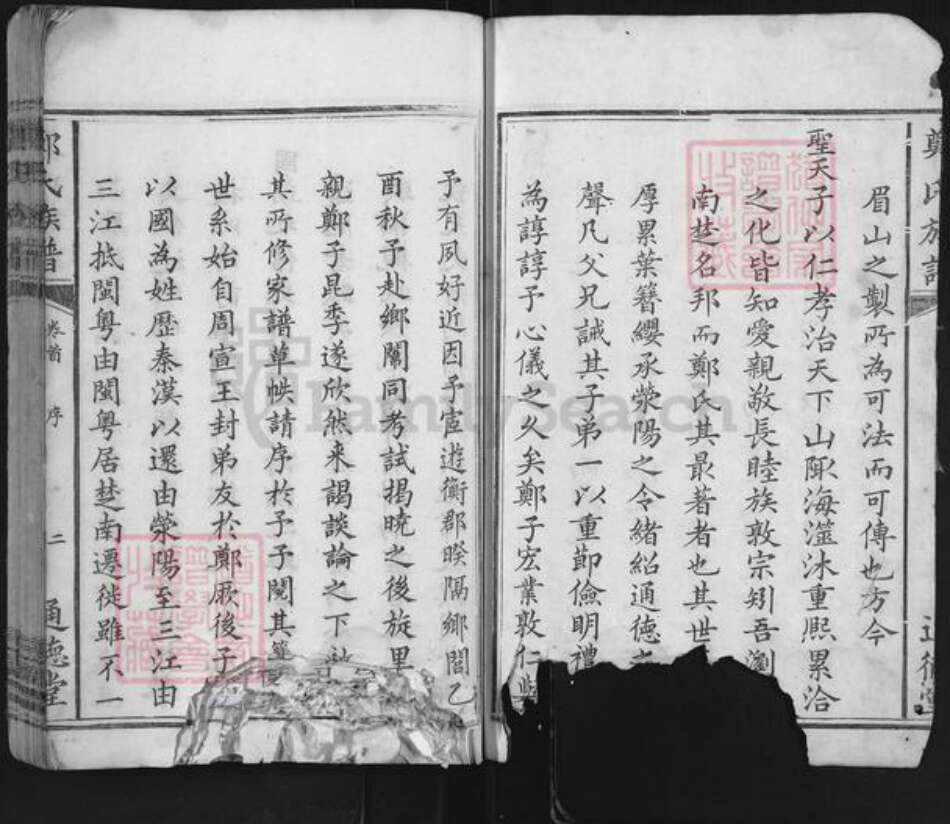 鄭氏族譜
眉山之製所為可法而可傳也方今
聖天子以仁孝治天下山陬海澨沐重熙累洽
之化皆知愛親敬長睦族敦宗矧吾瀏
南楚名邦而鄭氏其最著者也其世
厚累葉簪纓承滎陽之令緒紹通德
聲凡父兄誡其子弟一以重節儉明禮
為諄諄予心儀之久矣鄭子宏業敦仁
予有夙好近因予宦遊衡郡暌隔鄉閭乙
酉秋予赴鄉闈同考試揭曉之後旋里
親鄭子昆季遂欣然来謁談論之下
其所修家譜草帙請序於予予閱其
世系始自周宣王封弟友於鄭厥後子
以國為姓歷秦漢以還由滎陽至三江由
三江抵閩粤由閩粤居楚南遷徙雖不一
鄭氏族譜 卷首 序 二 通德堂
FamilySearch